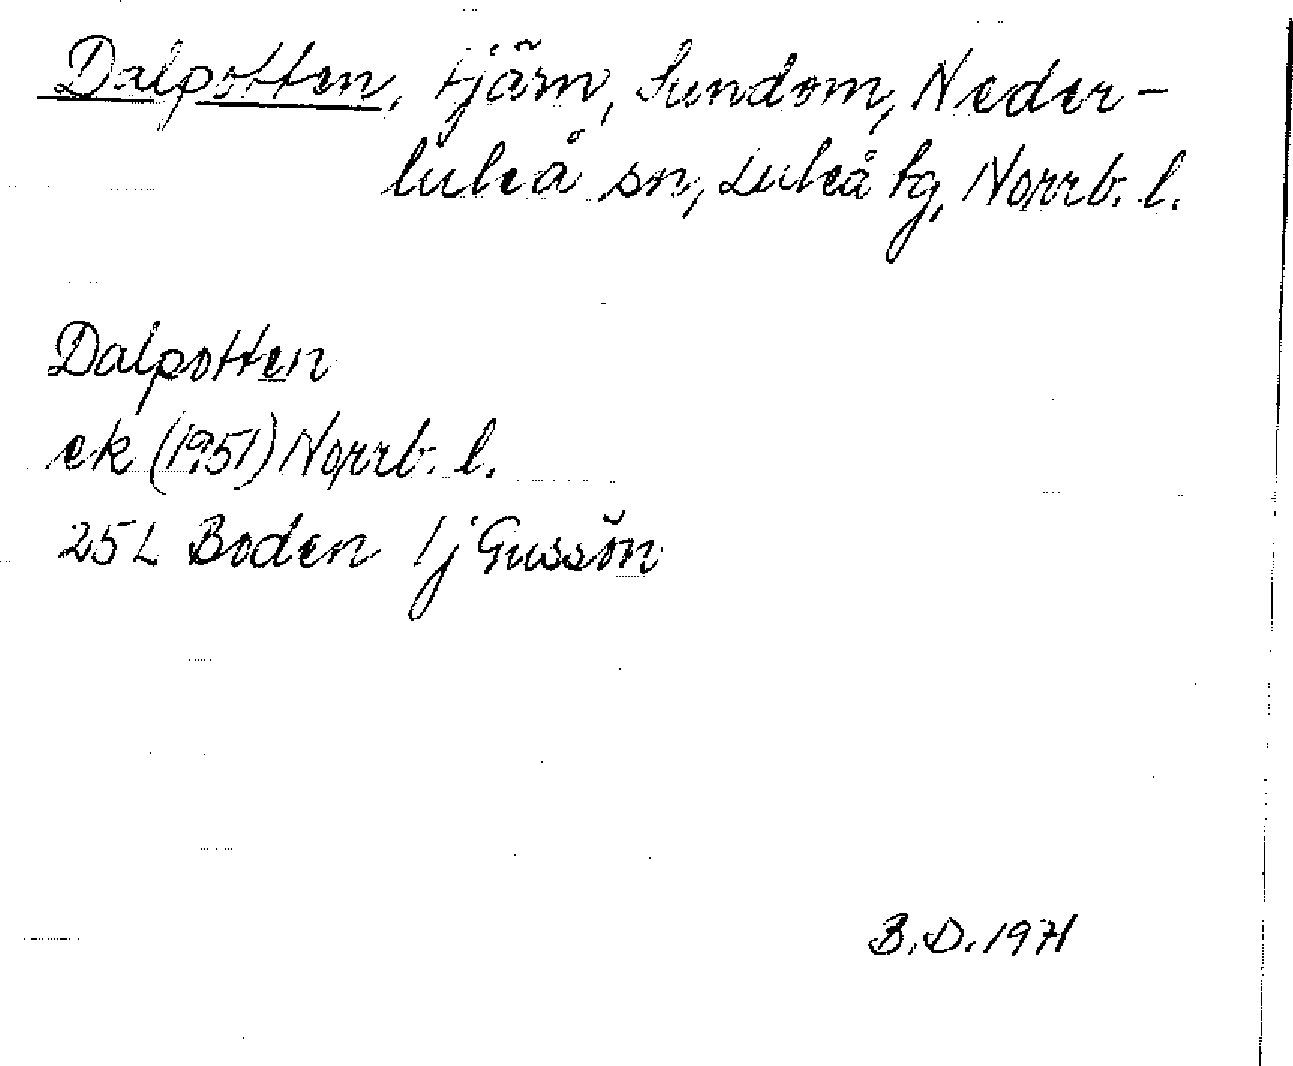 Dalpotten, tjärn, Sundom, Neder-
luleå sn, Luleå tg, Norrb. l.
Dalpotten
ek (1951) Norrb. l.
25L Boden 1j Gussön
B.D. 1971